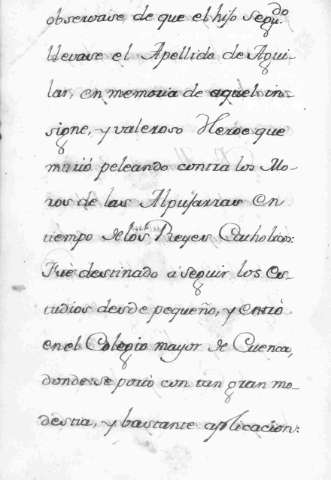 observase de que el hijo segu.do
llevase el Apellido de Agui-
lar, en memoria de aquel in-
signe, y valeroso Heroe que
murió peleando contra los Mo-
ros de las Alpujarras en
tiempo de los Reyes Catholicos:
Fue destinado a seguir los es-
tudios desde pequeño, y entró
en el Colegio mayor de Cuenca,
donde se portó con tan gran mo-
destia, y bastante aplicacion: